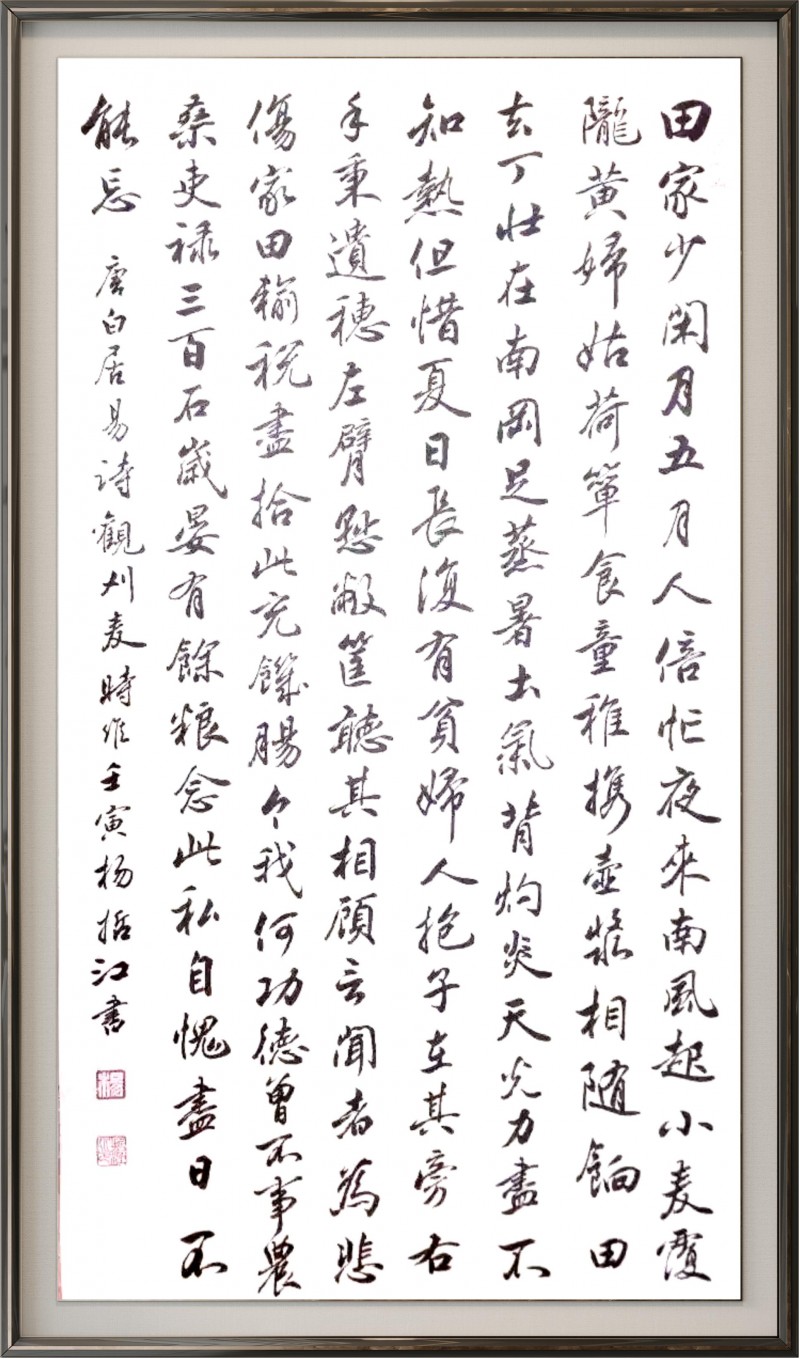 田家少閑月五月人倍忙夜來南風起小麦覆
隴黄婦姑荷簞食童稚携壺漿相随餉田
去丁壯在南岡足蒸暑土氣背灼炎天光力盡不
知熱但惜夏日長復有貧婦人抱子在其旁右
手秉遺穗左臂懸敝筐聽其相顧言聞者為悲
傷家田輸税盡拾此充饑腸今我何功德曾不事農
桑吏禄三百石歲晏有餘粮念此私自愧盡日不
能忘 唐白居易诗觀刈麦時维壬寅杨哲江書